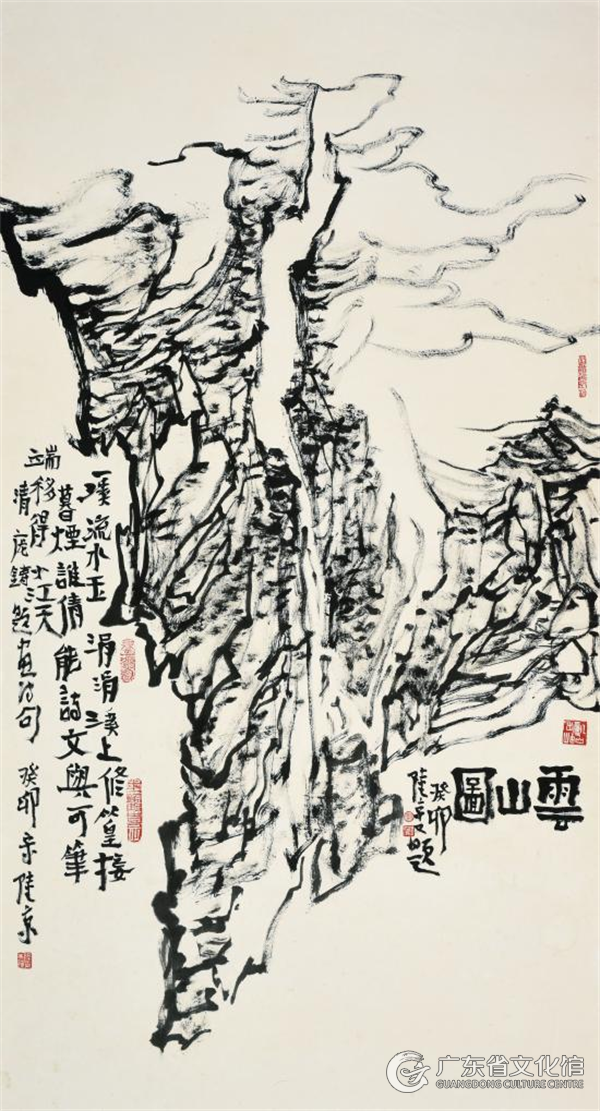 一溪流水玉涓涓溪上修篁接
暮煙誰倩能詩文與可筆
端移得小江天
清龐鑄之題畫詩句 癸卯 陸京
雲山圖
癸卯
陸京又題
广东省文化馆
GUANGDONG CULTURE CENTRE